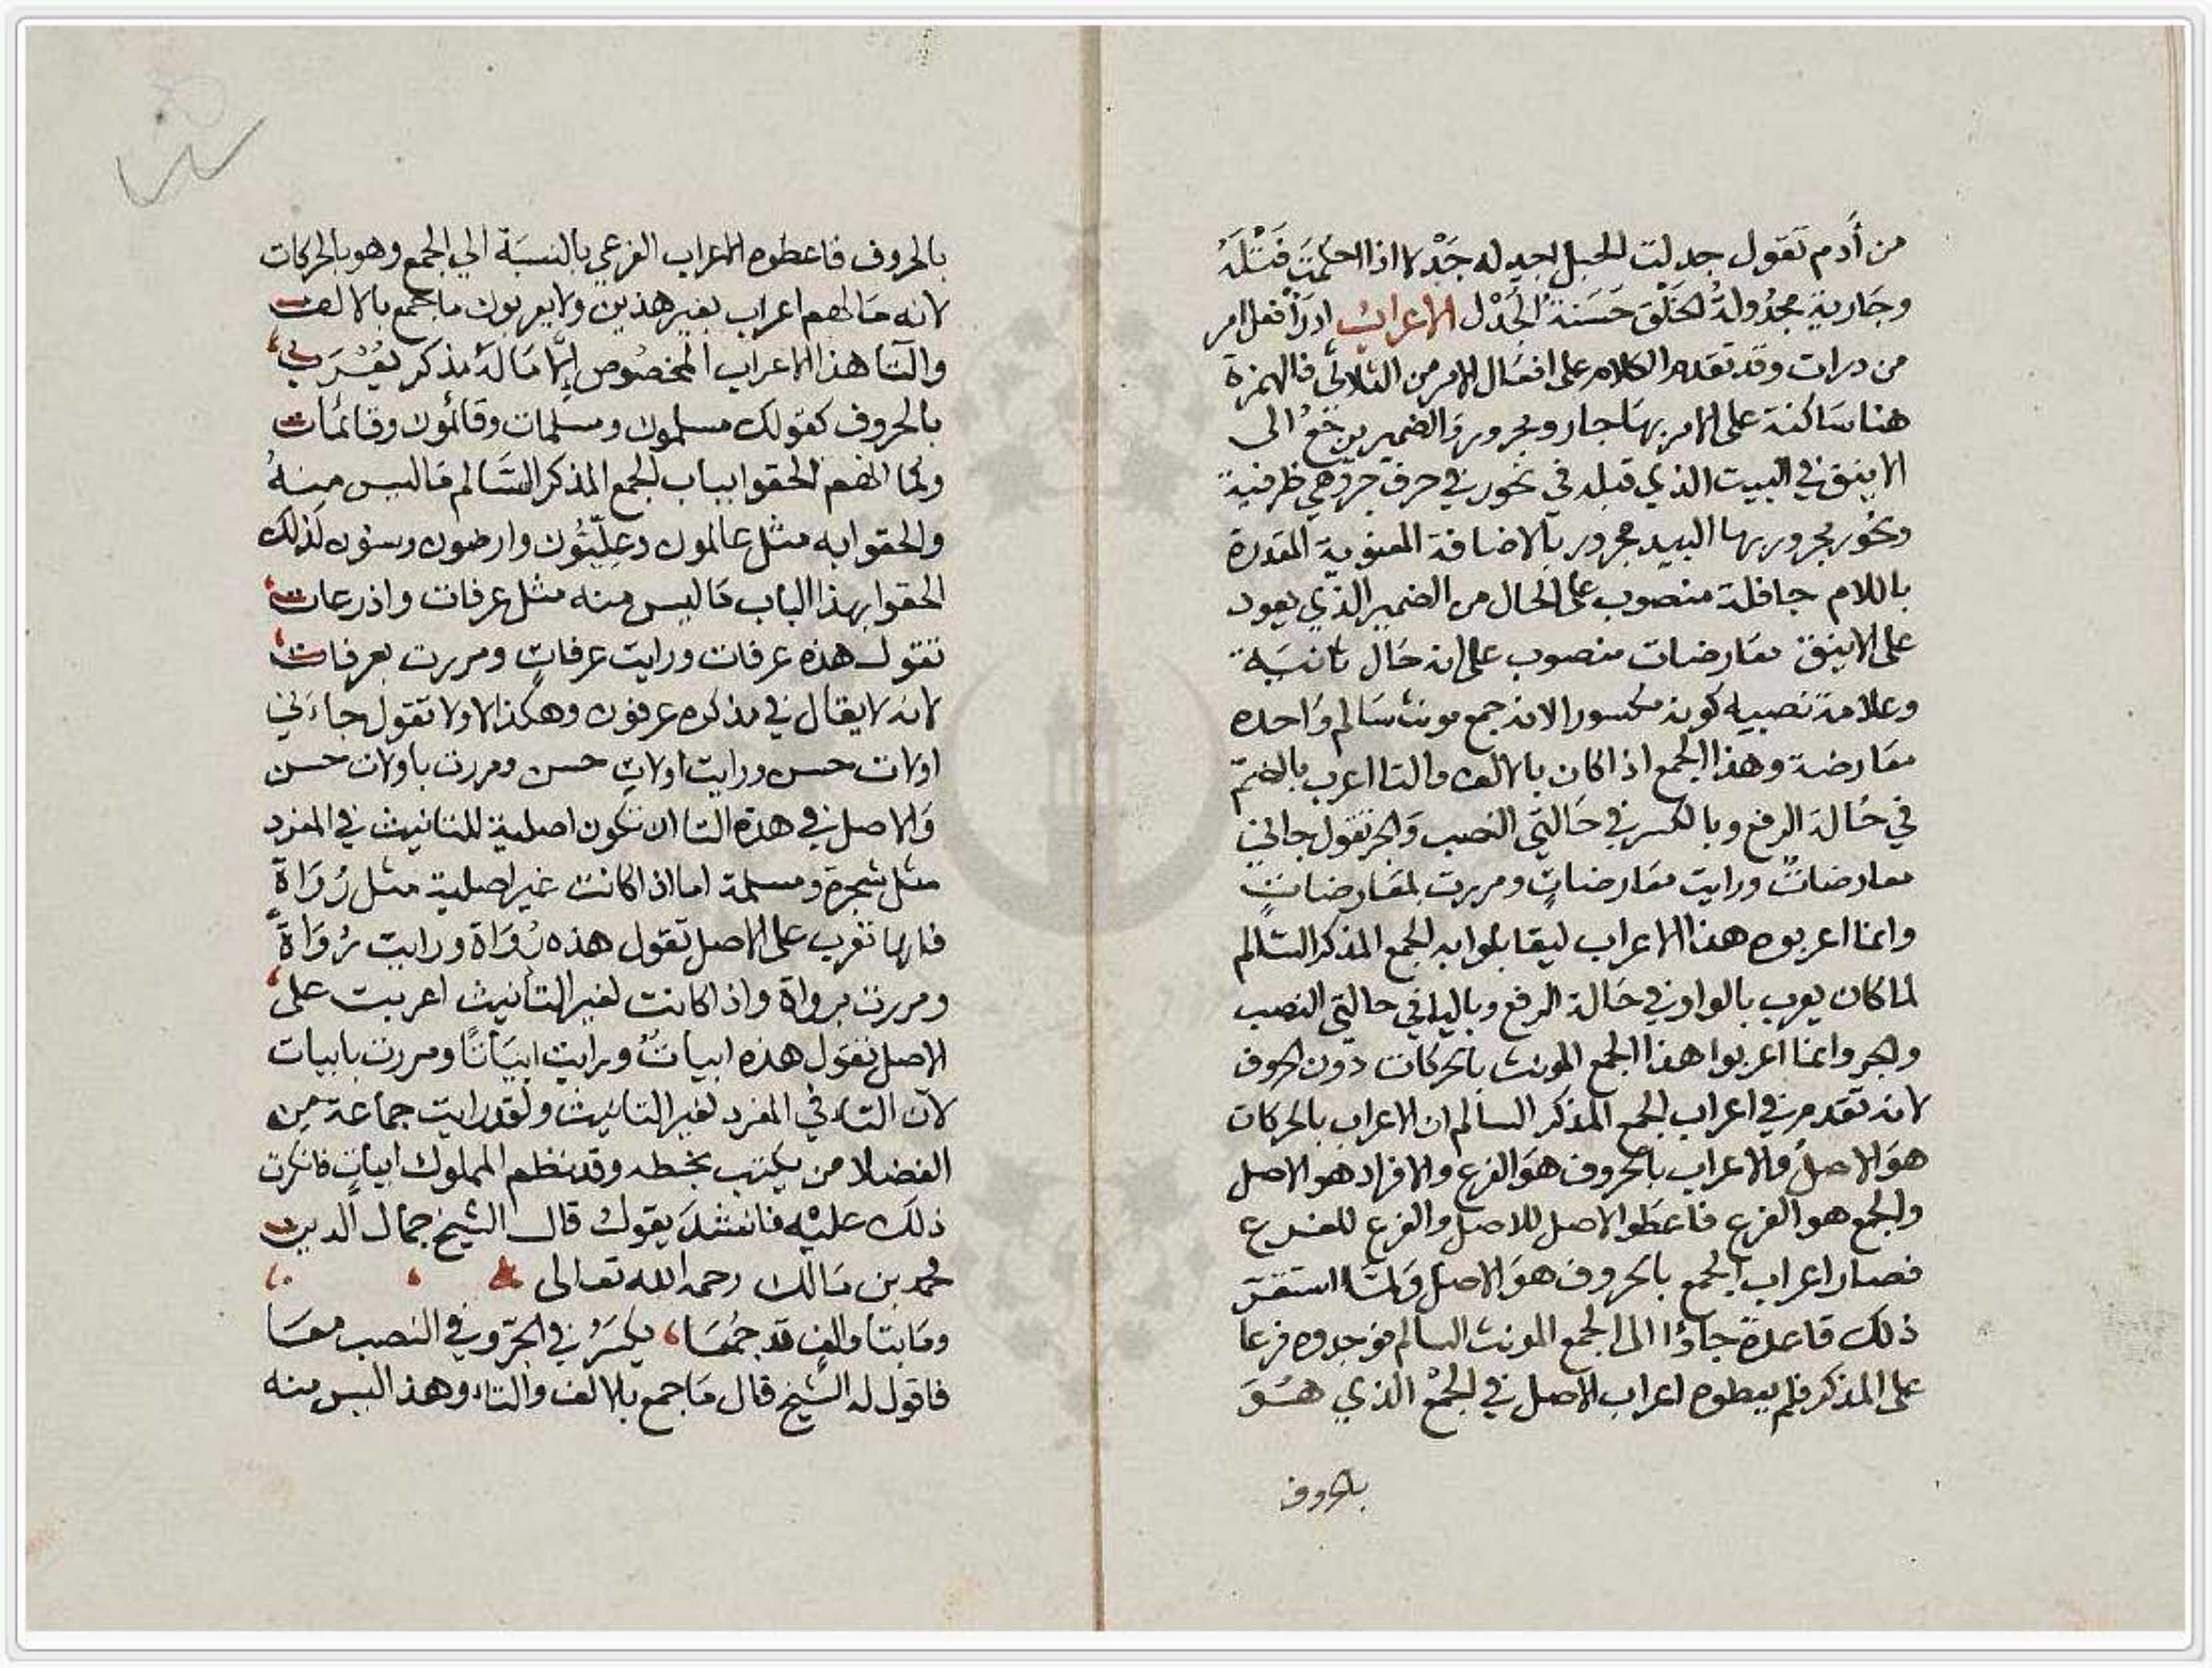 من أدم تقول جدلت الحبل اجدله جدلا اذا احكمت فتله
وجارية مجدولة الخلق حسنة الجدل الاعراب ادرأ فعل امر
من درات وقد تقدم الكلام على افعال الامر من الثلاثي فالهمزة
هنا ساكنة على الامر بها جار ومجرور والضمير يرجع الى
الاينق في البيت الذي قبله في نحور في حرف جر وهي ظرفية
ونحور مجرور بها البيد مجرور بالاضافة المعنوية المقدرة
باللام جافلة منصوب على الحال من الضمير الذي يعود
على الاينق معارضات منصوب على انه حال ثانية
وعلامة نصبه كونه مكسورا لانه جمع مونث سالم واحده
معارضة وهذا الجمع اذا كان بالالف والتا اعرب بالضم
في حالة الرفع وبالكسر في حالتي النصب والجر تقول جاتني
معارضاتٌ ورايت معارضاتٍ ومررت بمعارضاتٍ
وانما اعربوه هذا الاعراب ليقابلوا به الجمع المذكر السالم
لما كان يعرب بالواو في حالة الرفع وباليا في حالتي النصب
والجر وانما اعربوا هذا الجمع المونث بالحركات دون الحروف
لانه تقدم في اعراب الجمع المذكر السالم ان الاعراب بالحركات
هو الاصل والاعراب بالحروف هو الفرع والافراد هو الاصل
والجمع هو الفرع فاعطوا الاصل للاصل والفرع للفرع
فصار اعراب الجمع بالحروف هو الاصل ولما استقر
ذلك قاعدة جاؤا الى الجمع المونث السالم فوجدوه فرعا
على المذكر فلم يعطوه اعراب الاصل في الجمع الذي هو
بالحروف
بالحروف فاعطوه الاعراب الفرعي بالنسبة الي الجمع وهو بالحركات
لانه ما لهم اعراب بغير هذين ولا يعربون ما جمع بالالف
والتا هذا الاعراب المخصوص الا ما له مذكر يعرب
بالحروف كقولك مسلمون ومسلمات وقائمون وقائمات
وكما انهم الحقوا بباب الجمع المذكر السالم ما ليس منه
والحقوا به مثل عالمون وعليون وارضون وسنون كذلك
الحقوا بهذا الباب ما ليس منه مثل عرفات واذرعات
تقول هذه عرفات ورايت عرفاتٍ ومررت بعرفات
لانه لا يقال في مذكره عرفون وهكذا اولا تقول جاءني
اولات حسن ورايت اولاتِ حسن ومررت باولات حسن
والاصل في هذه التا ان تكون اصلية للتانيث في المفرد
مثل شجرة ومسلمة اما اذا كانت غير اصلية مثل رُوَاةً
فانها تعرب على الاصل تقول هذه رُوَاة ورايت رُوَاةً
ومررت برواة واذا كانت لغير التأنيث اعربت على
الاصل تقول هذه ابياتٌ ورايت ابياتًا ومررت بابيات
لان التاء في المفرد لغير التانيث ولقد رايت جماعة من
الفضلا من يكتب بخطه وقد نظم المملوك ابياتٍ فانكرت
ذلك عليه فانشد يقول قال الشيخ جمال الدين
محمد بن مالك رحمه الله تعالى
وما بتا والف قد جمعا، يكسر في الجر وفي النصب معا
فاقول له الشيخ قال ما جمع بالالف والتاء وهذا ليس منه